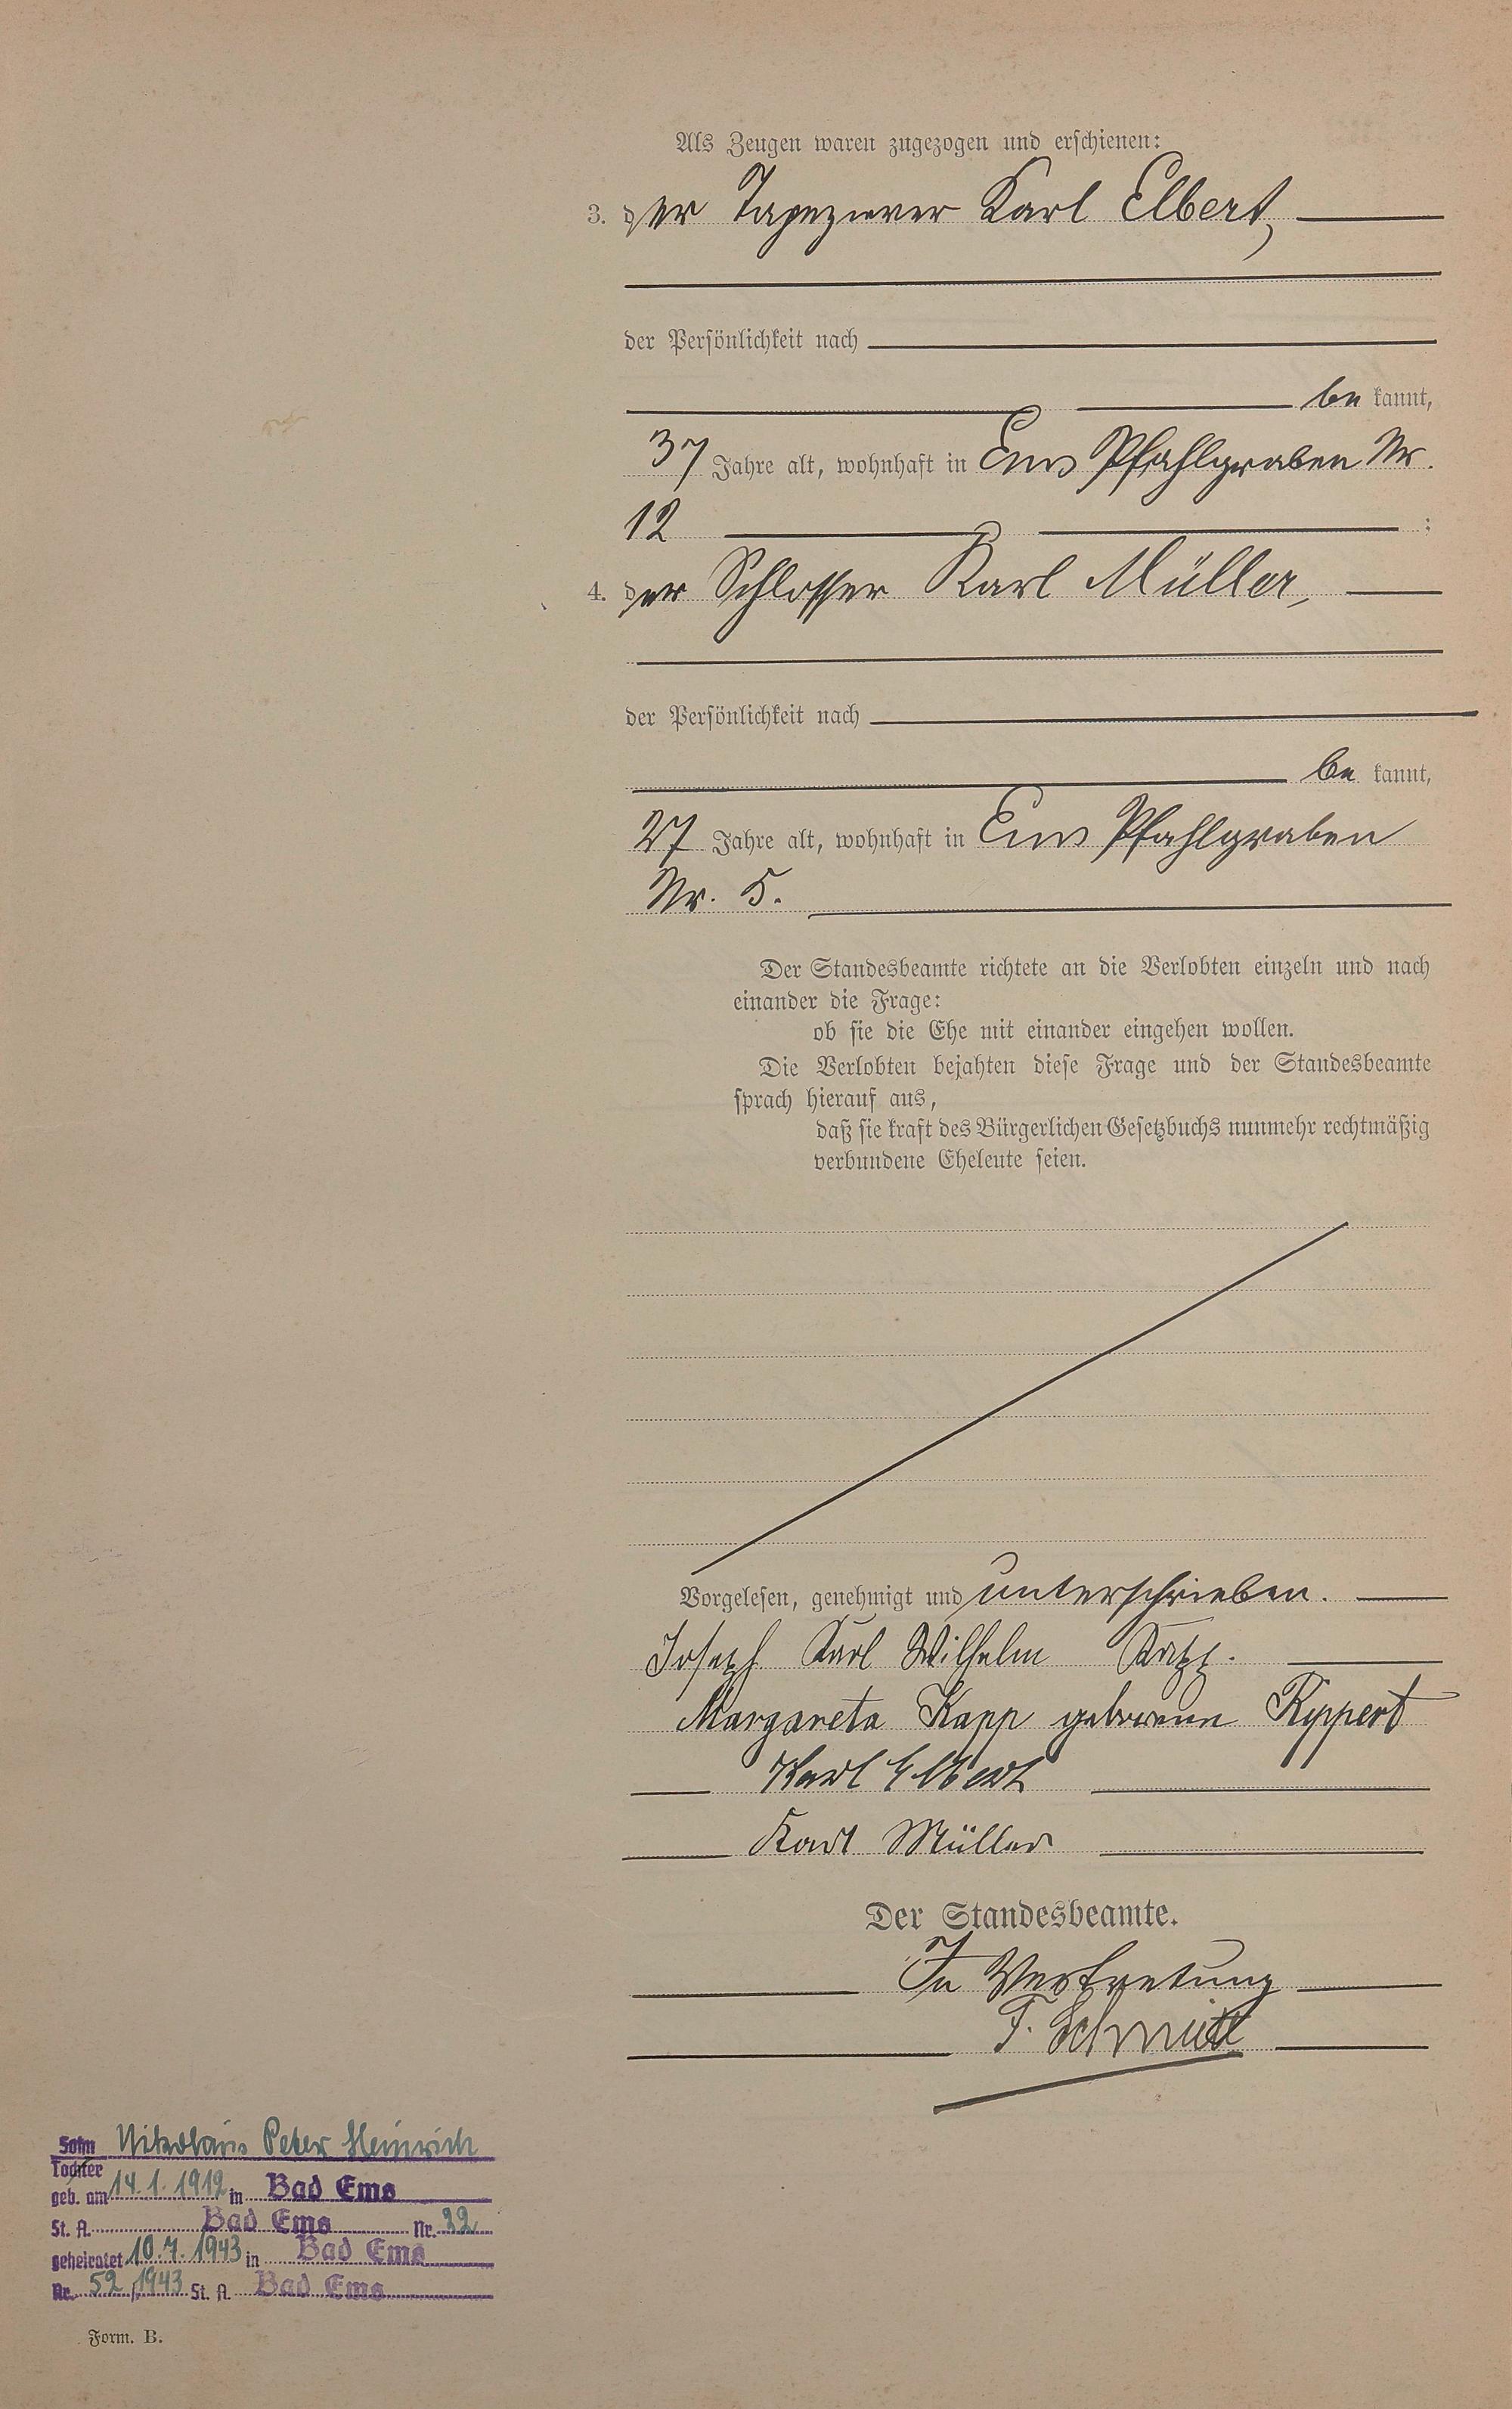 Als Zeugen waren zugezogen und erschienen:
3. der Tapezierer Karl Elbert,
der Persönlichkeit nach
be kannt,
37 Jahre alt, wohnhaft in Ems Pfahlgraben Nr.
12 ;
4. der Schlosser Karl Müller,
der Persönlichkeit nach
be kannt,
27 Jahre alt, wohnhaft in Ems Pfahlgraben
Nr. 5.
Der Standesbeamte richtete an die Verlobten einzeln und nach
einander die Frage:
ob sie die Ehe mit einander eingehen wollen.
Die Verlobten bejahten diese Frage und der Standesbeamte
sprach hierauf aus,
daß sie kraft des Bürgerlichen Gesetzbuchs nunmehr rechtmäßig
verbundene Eheleute seien.
Vorgelesen, genehmigt und unterschrieben.
Joseph Karl Wilhelm Kapp.
Margareta Kapp geborenen Rippert
Karl Elbert
Karl Müller
Der Standesbeamte.
In Vertretung
F. Schmitt
Sohn Nikolaus Peter Heinrich
Tochter
geb. am 14.1.1912 in Bad Ems
St. A. Bad Ems Nr. 32
geheiratet 10.7.1943 in Bad Ems
Nr. 52/1943 St. A. Bad Ems
Form. B.